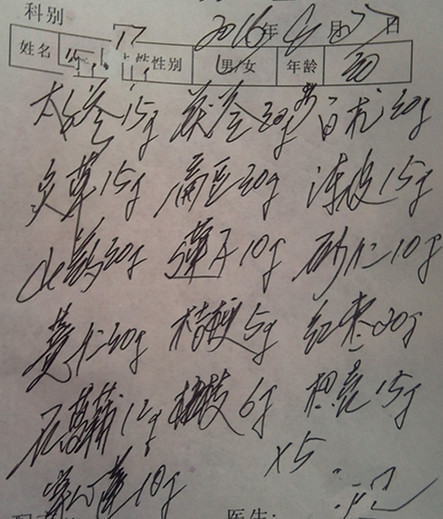 科别
2016年4月27日
姓名 性别 男/女 年龄 30
太子参15g 茯苓20g 炒白术20g
炙草15g 扁豆20g 陈皮15g
山药20g 莲子10g 砂仁10g
薏仁20g 桔梗5g 红枣20g
石菖蒲12g 桂枝6g 枳壳15g
x5
10g
医生: